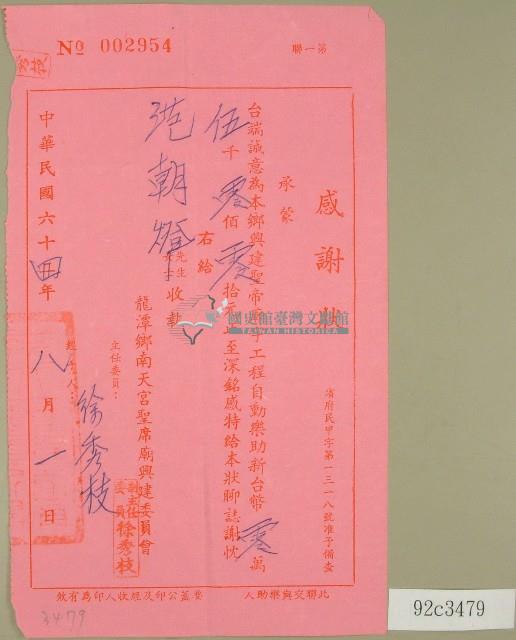 第一聯
№ 002954
感謝狀
省府民甲字第一三一八號准予備查
承蒙
台端誠意為本鄉興建聖帝工程自動樂助新台幣零萬
伍千零佰零拾元至深銘感特給本狀聊誌謝忱
右給
范朝燈先生女士收執
龍潭鄉南天宮聖帝廟興建委員會
主任委員：
副主任委員徐秀枝
經收人：徐秀枝
中華民國六十四年八月一日
此聯交與樂助人
要蓋公印及經收人印為有效
國史館臺灣文獻館
TAIWAN HISTORICA
3479
92c3479